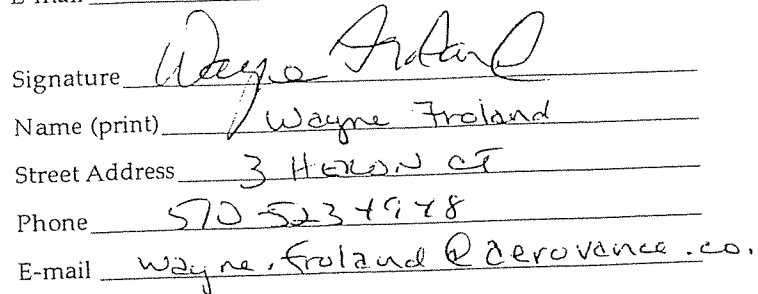 E-mail
Signature Wayne Froland
Name (print) Wayne Froland
Street Address 3 HERON CT
Phone 570-523-4948
E-mail wayne.froland@aerovance.co.